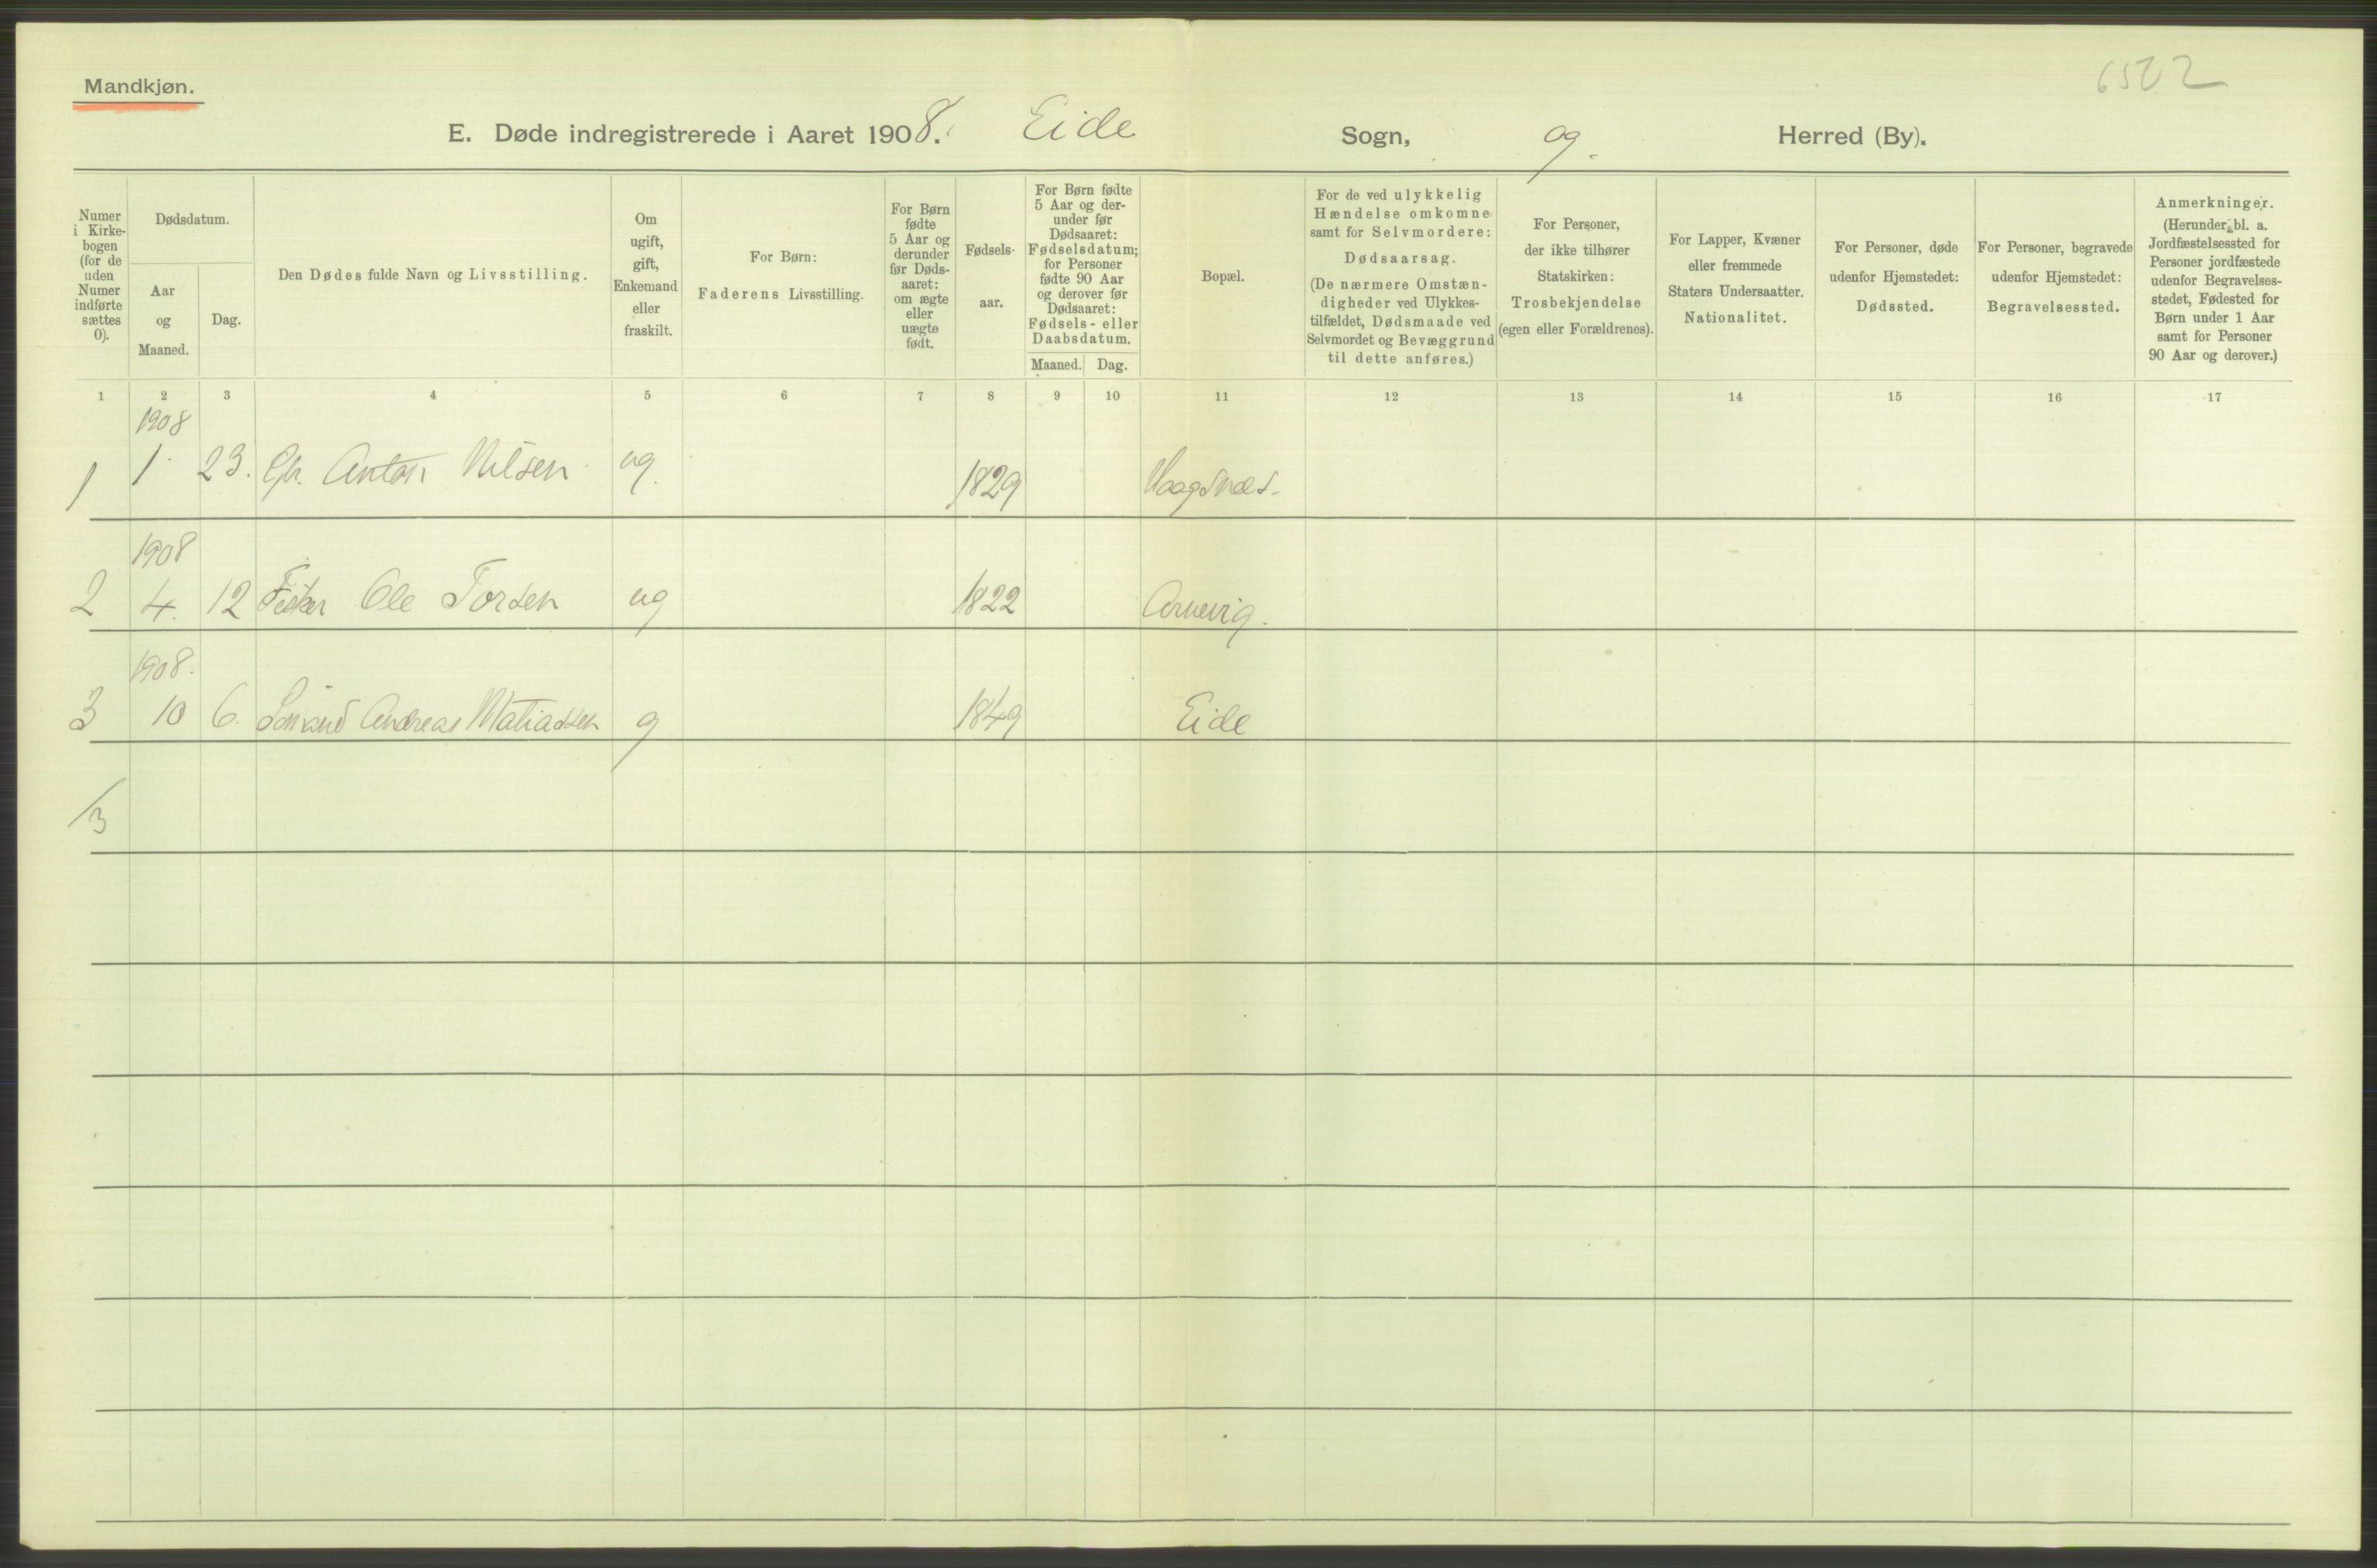 Mandkjøn.
6522
E. Døde indregistrerede i Aaret 1908. Eide Sogn, og Herred (By).
Numer i Kirkebogen (for de uden Numer indførte sættes 0).
Dødsdatum.
Aar og Maaned.
Dag.
Den Dødes fulde Navn og Livsstilling.
Om ugift, gift, Enkemand eller fraskilt.
For Børn: Faderens Livsstilling.
For Børn fødte 5 Aar og derunder før Dødsaaret: om ægte eller uægte født.
Fødselsaar.
For Børn fødte 5 Aar og derunder før Dødsaaret: Fødselsdatum; for Personer fødte 90 Aar og derover før Dødsaaret: Fødsels- eller Daabsdatum.
Maaned.
Dag.
Bopæl.
For de ved ulykkelig Hændelse omkomne samt for Selvmordere: Dødsaarsag. (De nærmere Omstændigheder ved Ulykkestilfældet, Dødsmaade ved Selvmordet og Bevæggrund til dette anføres.)
For Personer, der ikke tilhører Statskirken: Trosbekjendelse (egen eller Forældrenes).
For Lapper, Kvæner eller fremmede Staters Undersaatter. Nationalitet.
For Personer, døde udenfor Hjemstedet: Dødssted.
For Personer, begravede udenfor Hjemstedet: Begravelsessted.
Anmerkninger. (Herunder bl. a. Jordfæstelsessted for Personer jordfæstede udenfor Begravelsesstedet, Fødested for Børn under 1 Aar samt for Personer 90 Aar og derover.)
1 2 3 4 5 6 7 8 9 10 11 12 13 14 15 16 17
1908
1 1 23. Anton Nilsen ug. 1829 Haagsnæs.
1908
2 4. 12 Fisker Ole Torsen ug 1822 Arnevig.
1908.
3 10 6. Sømand Andreas Matiassen g 1849 Eide
/3